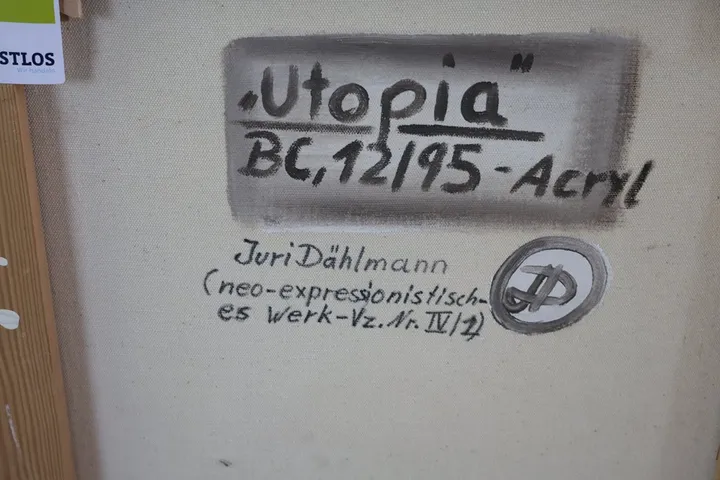 STLOS
„Utopia"
BC, 12/95 - Acryl
Juri Dählmann
(neo-expressionistisch-
es Werk-Vz. Nr. IV/1)
JD